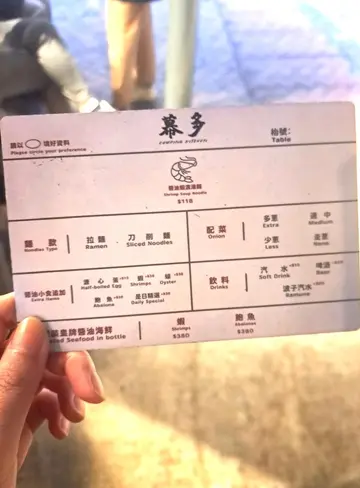 幕多
請以 ○ 填好資料
Please circle your preference
枱號:
Table
Shrimp Soup Noodle
$118
麵款
Noodles Type
拉麵
Ramen
刀削麵
Sliced Noodles
配菜
Onion
多蔥
Extra
適中
Medium
少蔥
Less
走蔥
None
醬油小食追加
Extra Items
Half-boiled Egg
蝦
Shrimps
蠔
Oyster
鮑魚
Abalone
是日精選
Daily Special
飲料
Drinks
汽水
Soft Drink
啤酒
Beer
波子汽水
Ramune
皇牌醬油海鮮
Seafood in bottle
蝦
Shrimps
$380
鮑魚
Abalones
$380